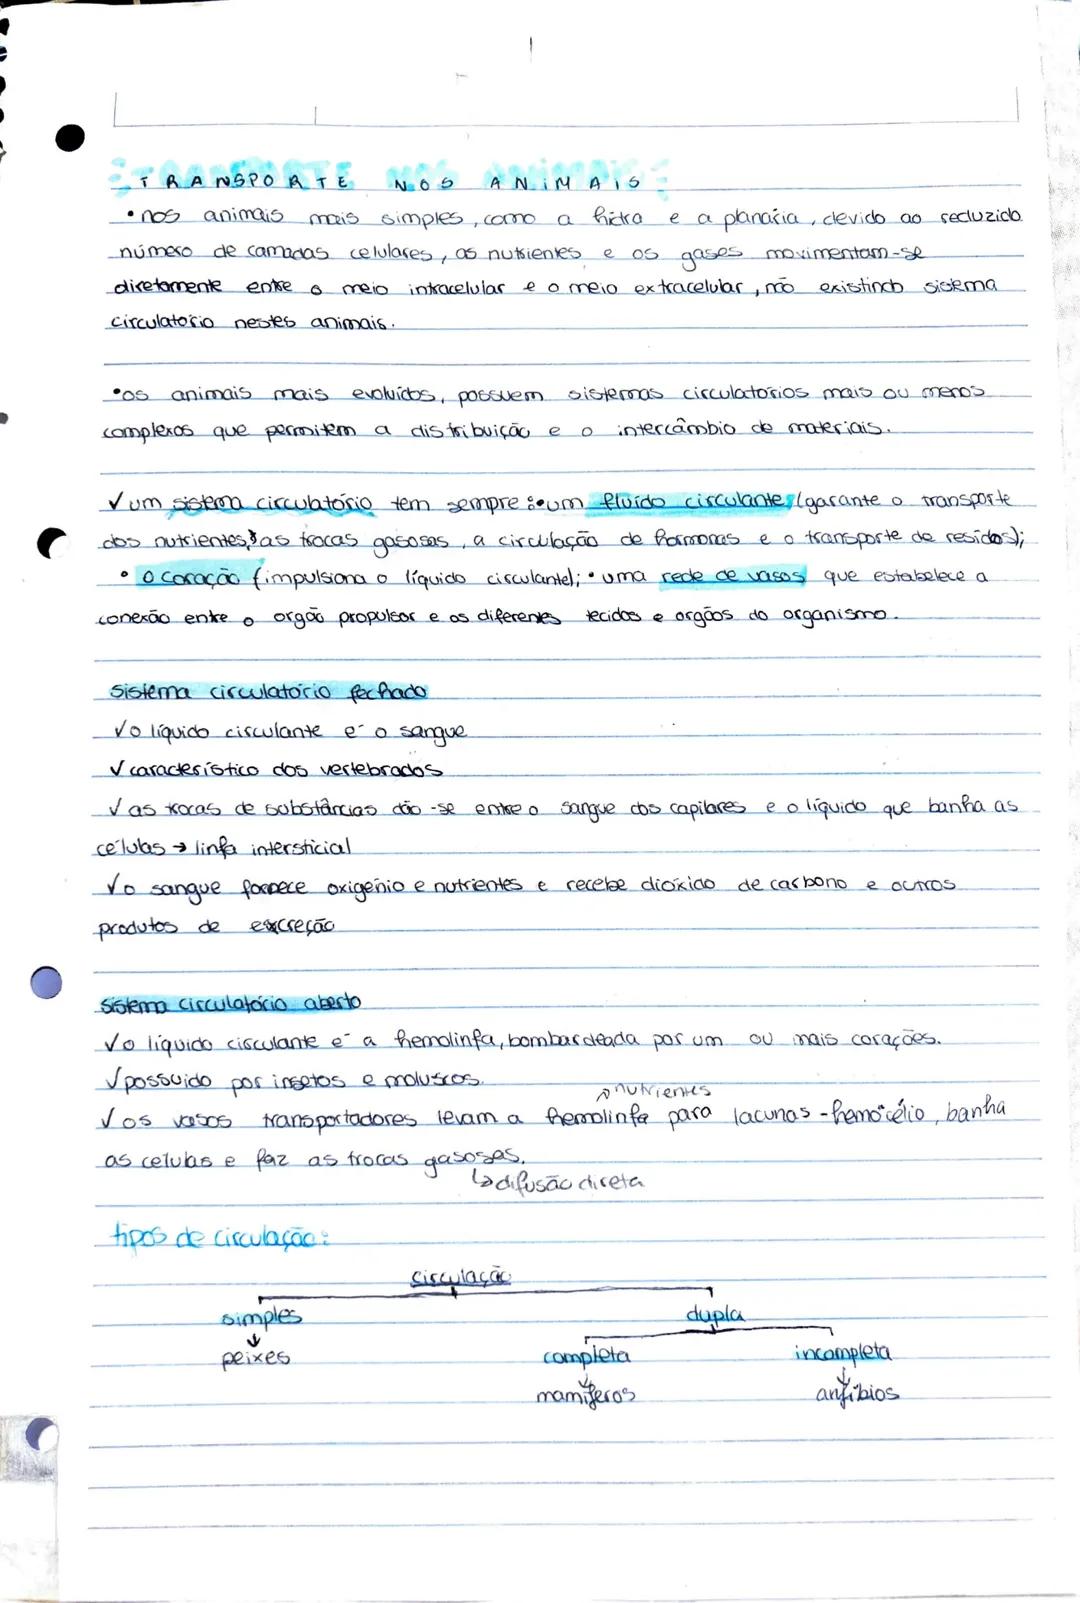 TRANSPORTE NOS ANIMAIS
•nos animais mais simples, como a hidra e a planária, devido ao reduzido
número de camadas celulares, os nutrientes e os gases movimentam-se
diretamente entre o meio intracelular e o meio extracelular, não existindo sistema
circulatório nestes animais.
•os animais mais evoluídos, possuem sistemas circulatórios mais ou menos
complexos que permitem a distribuição e o intercâmbio de materiais.
✓um sistema circulatório tem sempre:•um fluído circulante (garante o transporte
dos nutrientes, as trocas gasosas, a circulação de hormonas e o transporte de resídos);
• o coração (impulsiona o líquido circulante); • uma rede de vasos que estabelece a
conexão entre o orgão propulsor e os diferentes tecidos e orgãos do organismo.
sistema circulatório fechado
✓o líquido circulante é o sangue
✓característico dos vertebrados
✓as trocas de substâncias dão-se entre o sangue dos capilares e o líquido que banha as
células → linfa intersticial
✓o sangue fornece oxigénio e nutrientes e recebe dióxido de carbono e outros
produtos de excreção
sistema circulatório aberto
✓o líquido circulante é a hemolinfa, bombardeada por um ou mais corações.
✓possuido por insetos e moluscos.
↗nutrientes
✓os vasos transportadores levam a hemolinfa para lacunas - hemocélio, banha
as celulas e faz as trocas gasosas.
↳difusão direta
tipos de circulação:
circulação
simples dupla
↓
peixes completa incompleta
↓ ↓
mamíferos anfíbios